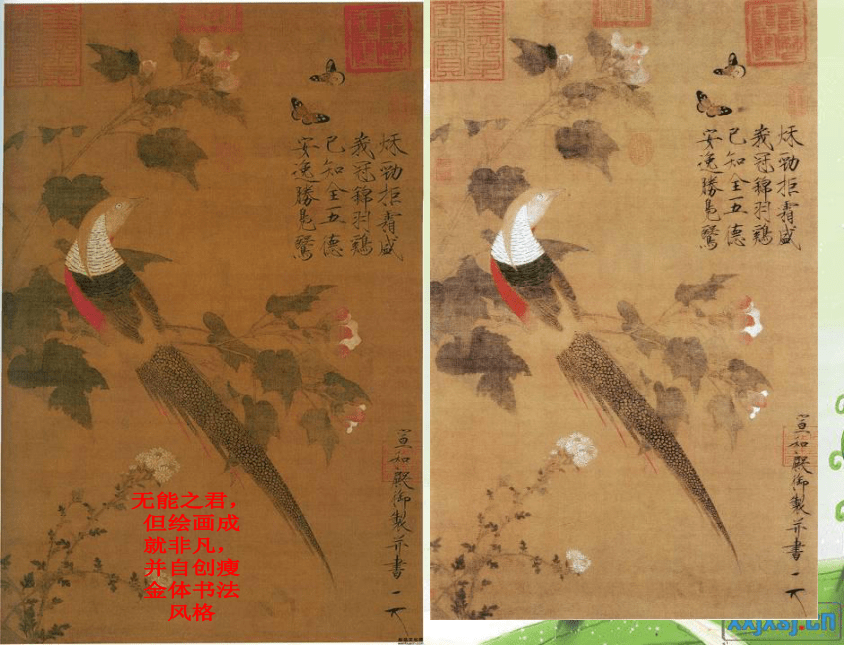 秋勁拒霜盛
峩冠錦羽鷄
已知全五德
安逸勝鳬鷖
宣和殿御製并書
无能之君，
但绘画成
就非凡，
并自创瘦
金体书法
风格
秋勁拒霜盛
峩冠錦羽鷄
已知全五德
安逸勝鳬鷖
宣和殿御製并書
xxjxsj.cn